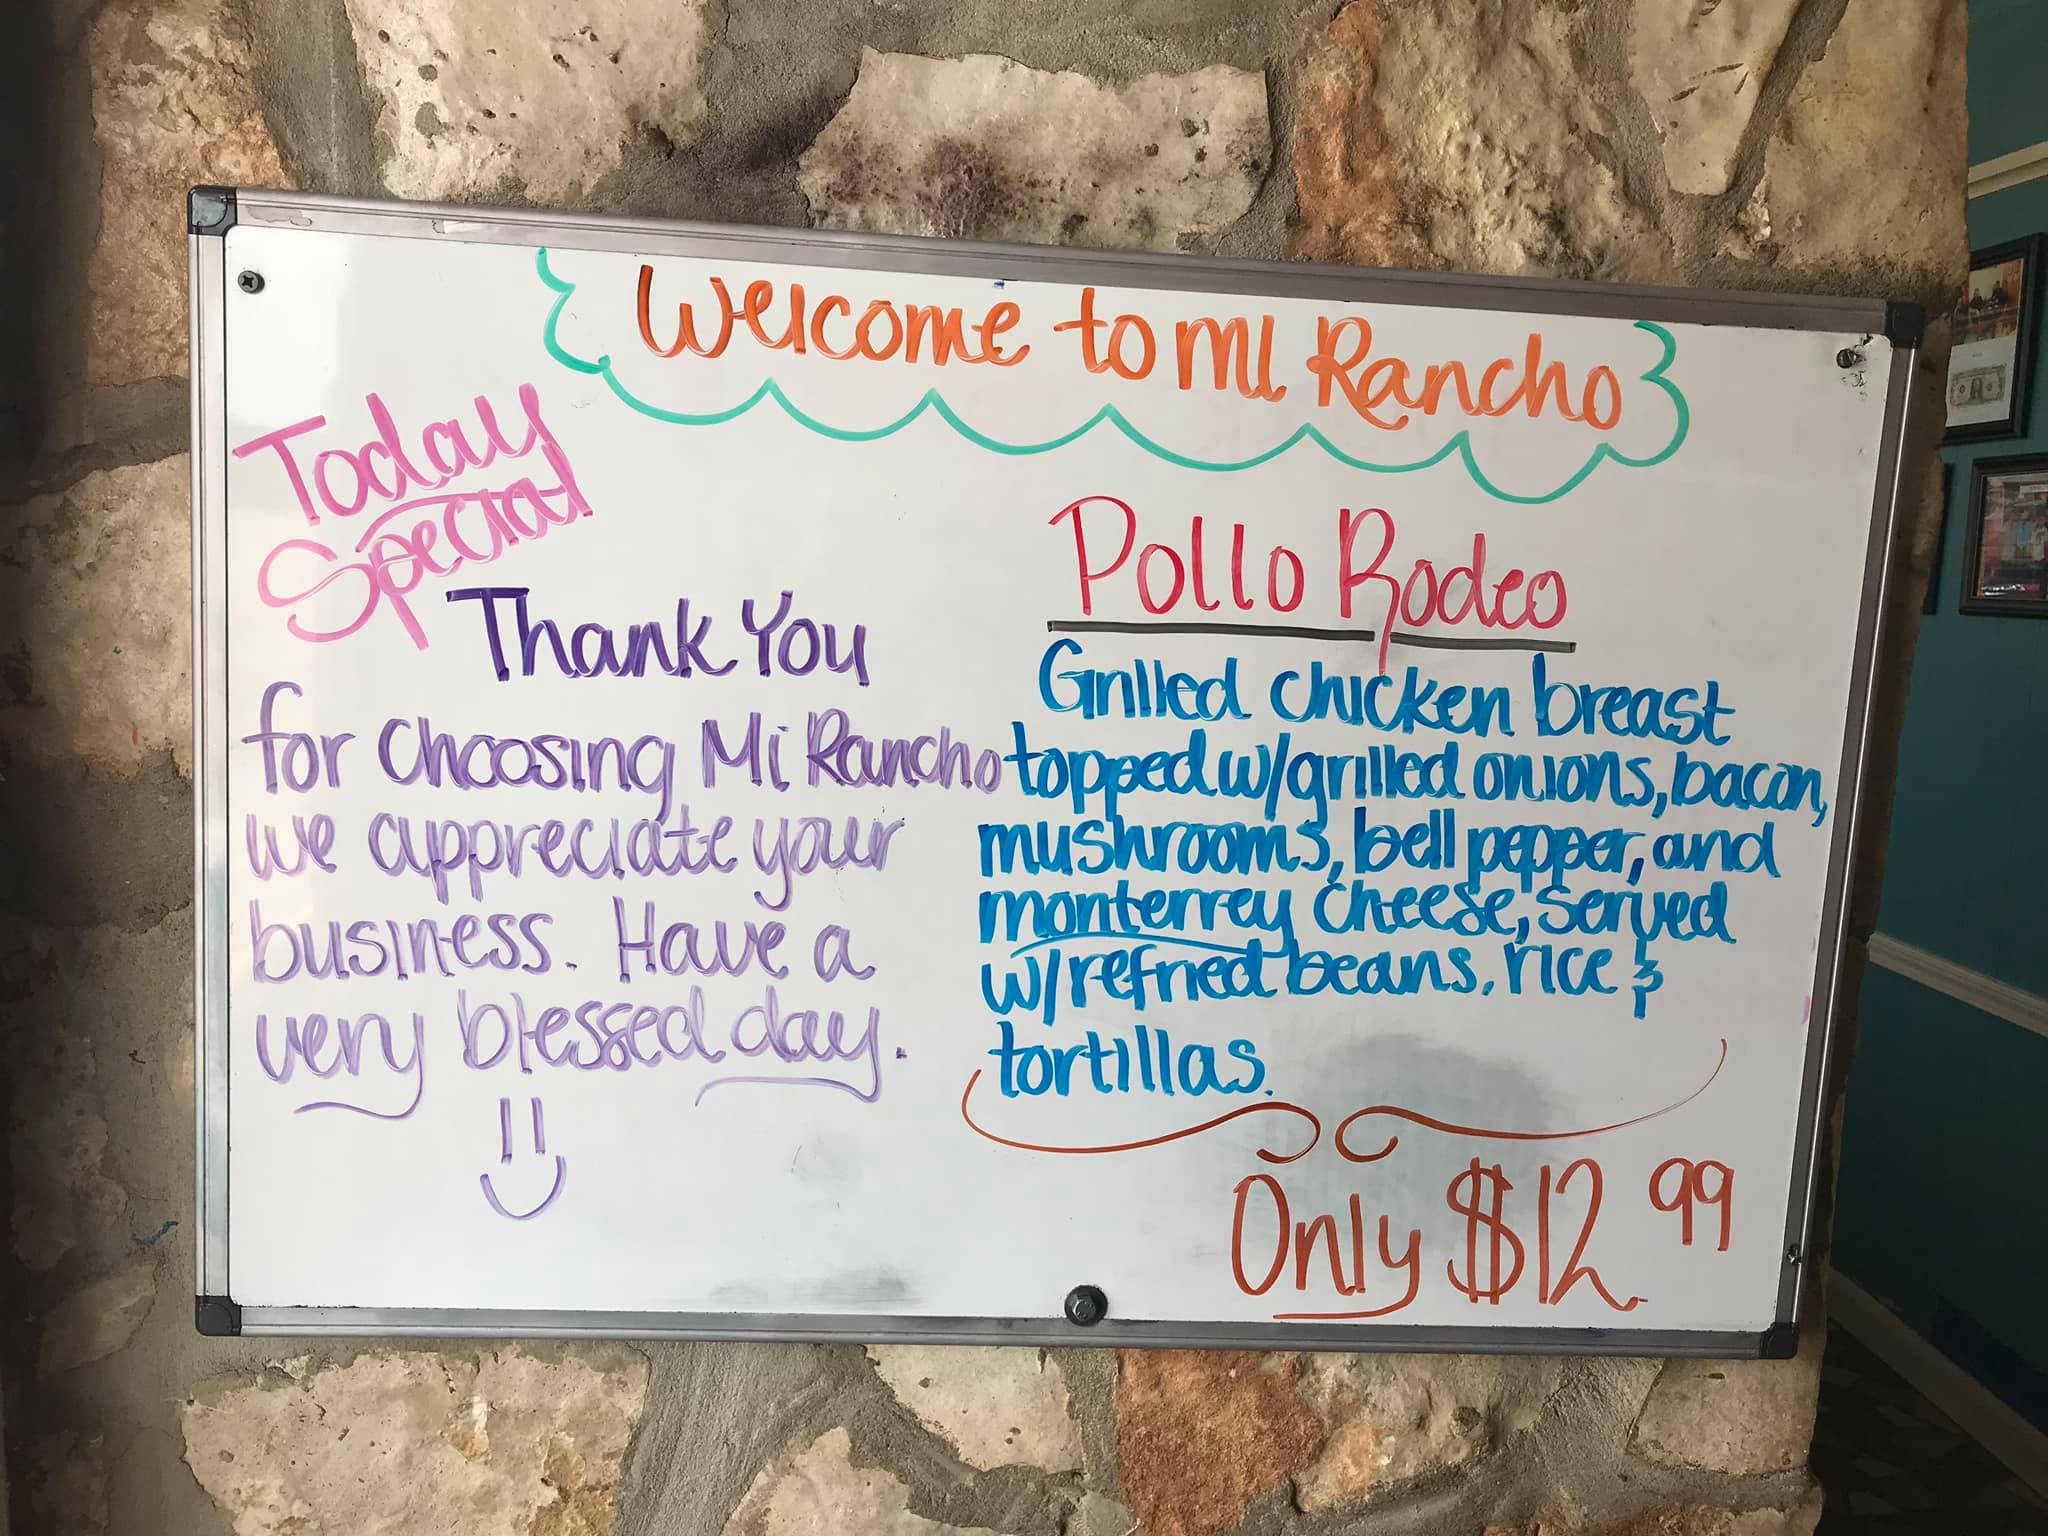 Welcome to Mi Rancho
Today
Special
Thank You
for choosing Mi Rancho
we appreciate your
business. Have a
very blessed day.
Pollo Rodeo
Grilled chicken breast
topped w/grilled onions, bacon,
mushrooms, bell pepper, and
monterrey cheese, served
w/refried beans, rice &
tortillas.
Only $12.99